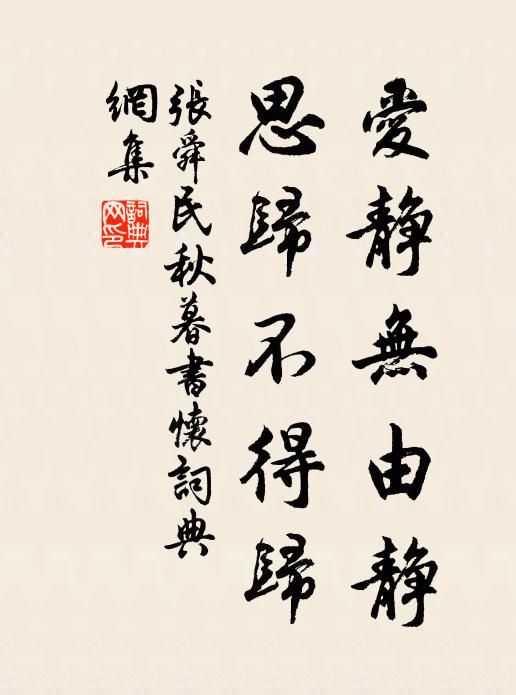 愛静無由静
思歸不得歸
張舜民秋暮書懷詞典
網集
詞典
网印